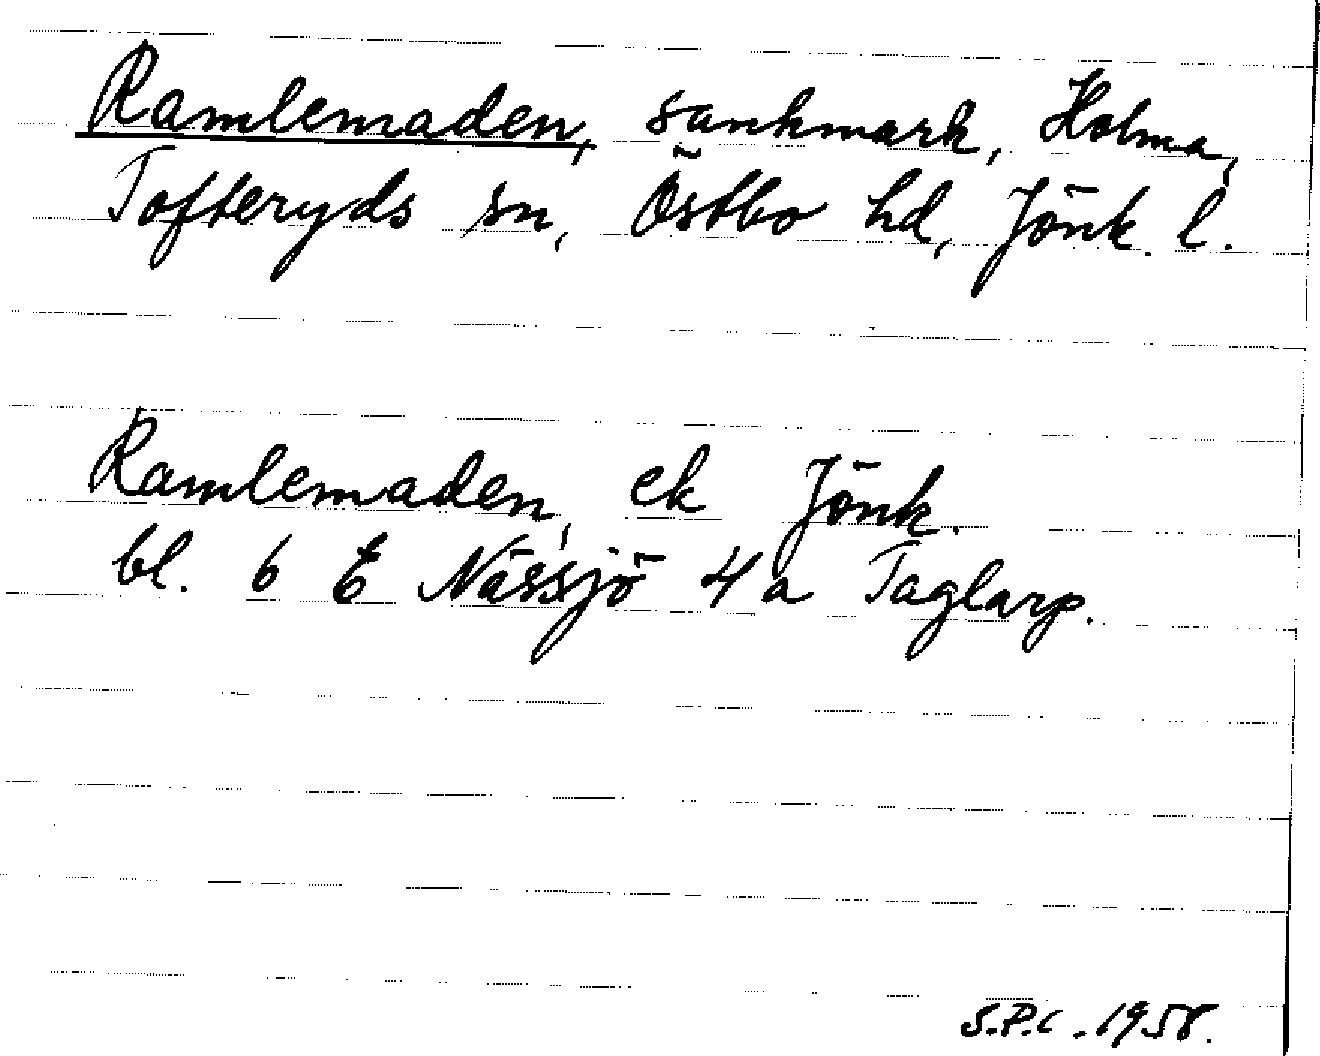 Ramlemaden, sankmark, Holma,
Tofteryds sn, Östbo hd, Jönk. l.
Ramlemaden, ek Jönk.
bl. 6 E Nässjö 4 a Taglarp.
S.P.C. 1958.